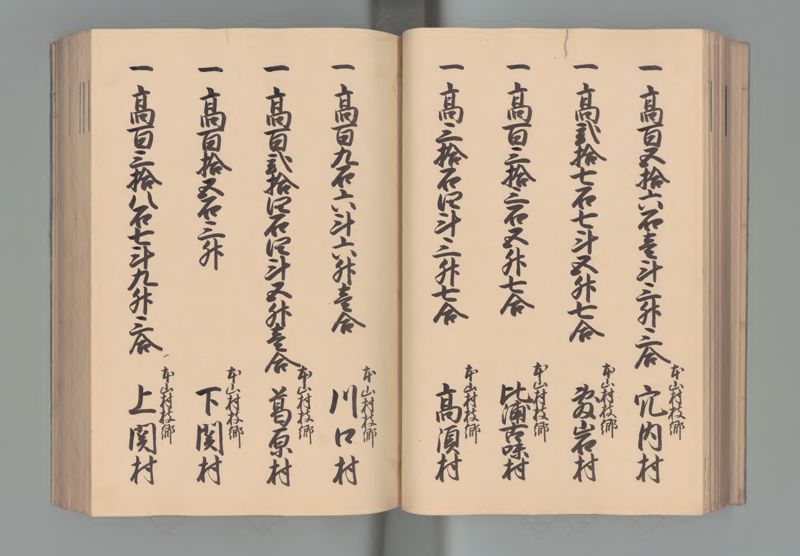 一 髙百五拾六石壱斗三升三合
本山村枝郷
穴内村
一 髙弐拾七石七斗五升七合
本山村枝郷
岩村
一 髙百三拾三石五升七合
本山村枝郷
比浦古味村
一 髙三拾石四斗三升七合
本山村枝郷
髙須村
一 髙百九石六斗六升壱合
本山村枝郷
川口村
一 髙百弐拾四石四斗五升壱合
本山村枝郷
葛原村
一 髙百拾五石三升
本山村枝郷
下関村
一 髙百三拾八石七斗九升三合
本山村枝郷
上関村